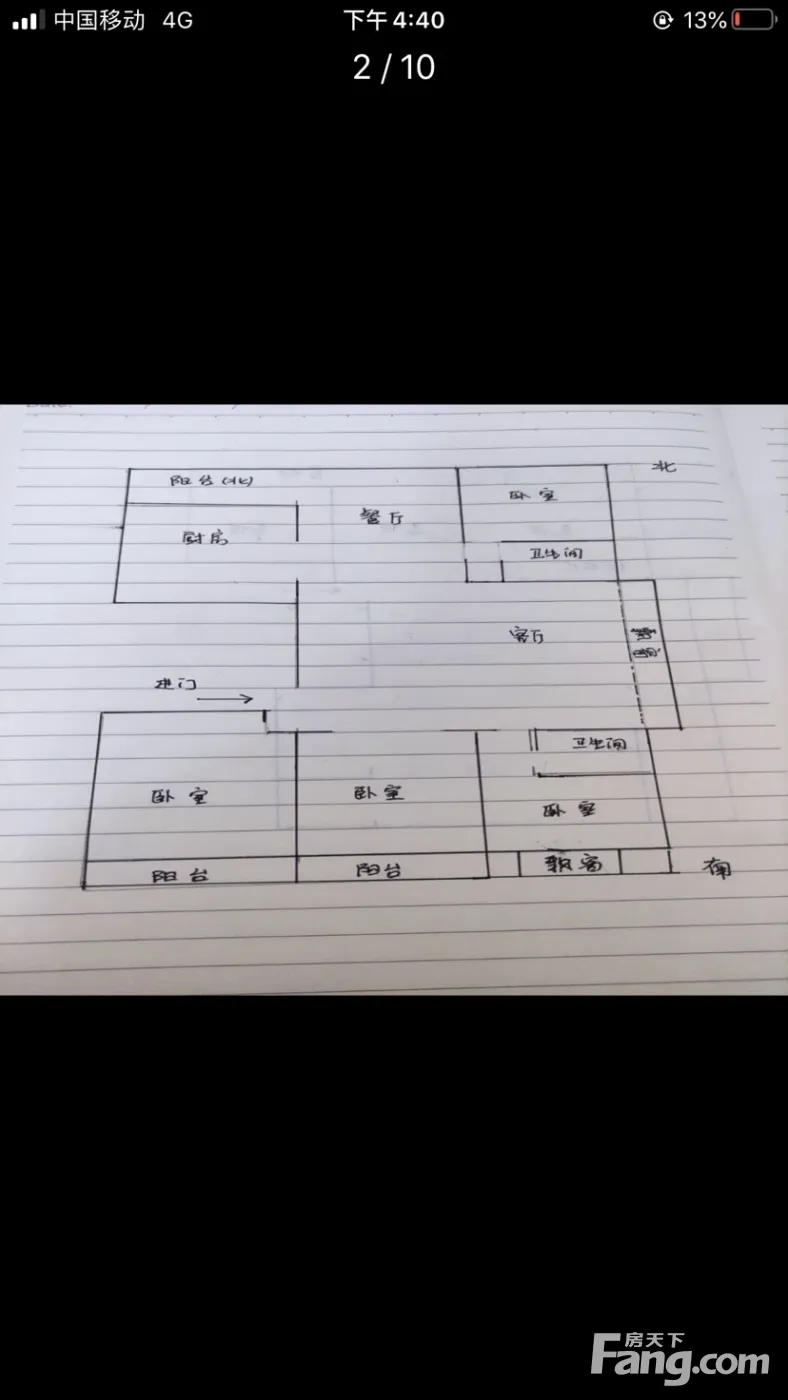 中国移动 4G 下午4:40 13%
2 / 10
北
阳台(北)
餐厅
卧室
厨房
卫生间
客厅
进门
卫生间
卧室
卧室
卧室
阳台
阳台
飘窗
南
房天下
Fang.com